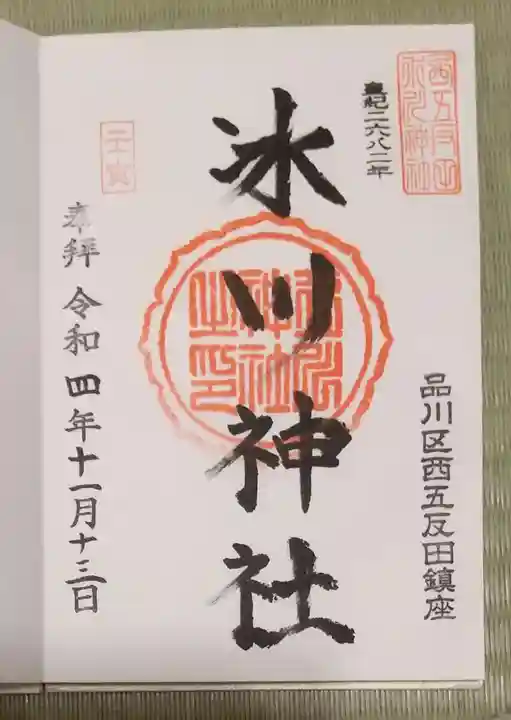 西五反田氷川神社
皇紀二六八二年
品川区西五反田鎮座
氷川神社
氷川神社之印
壬寅
奉拝 令和四年十一月十三日